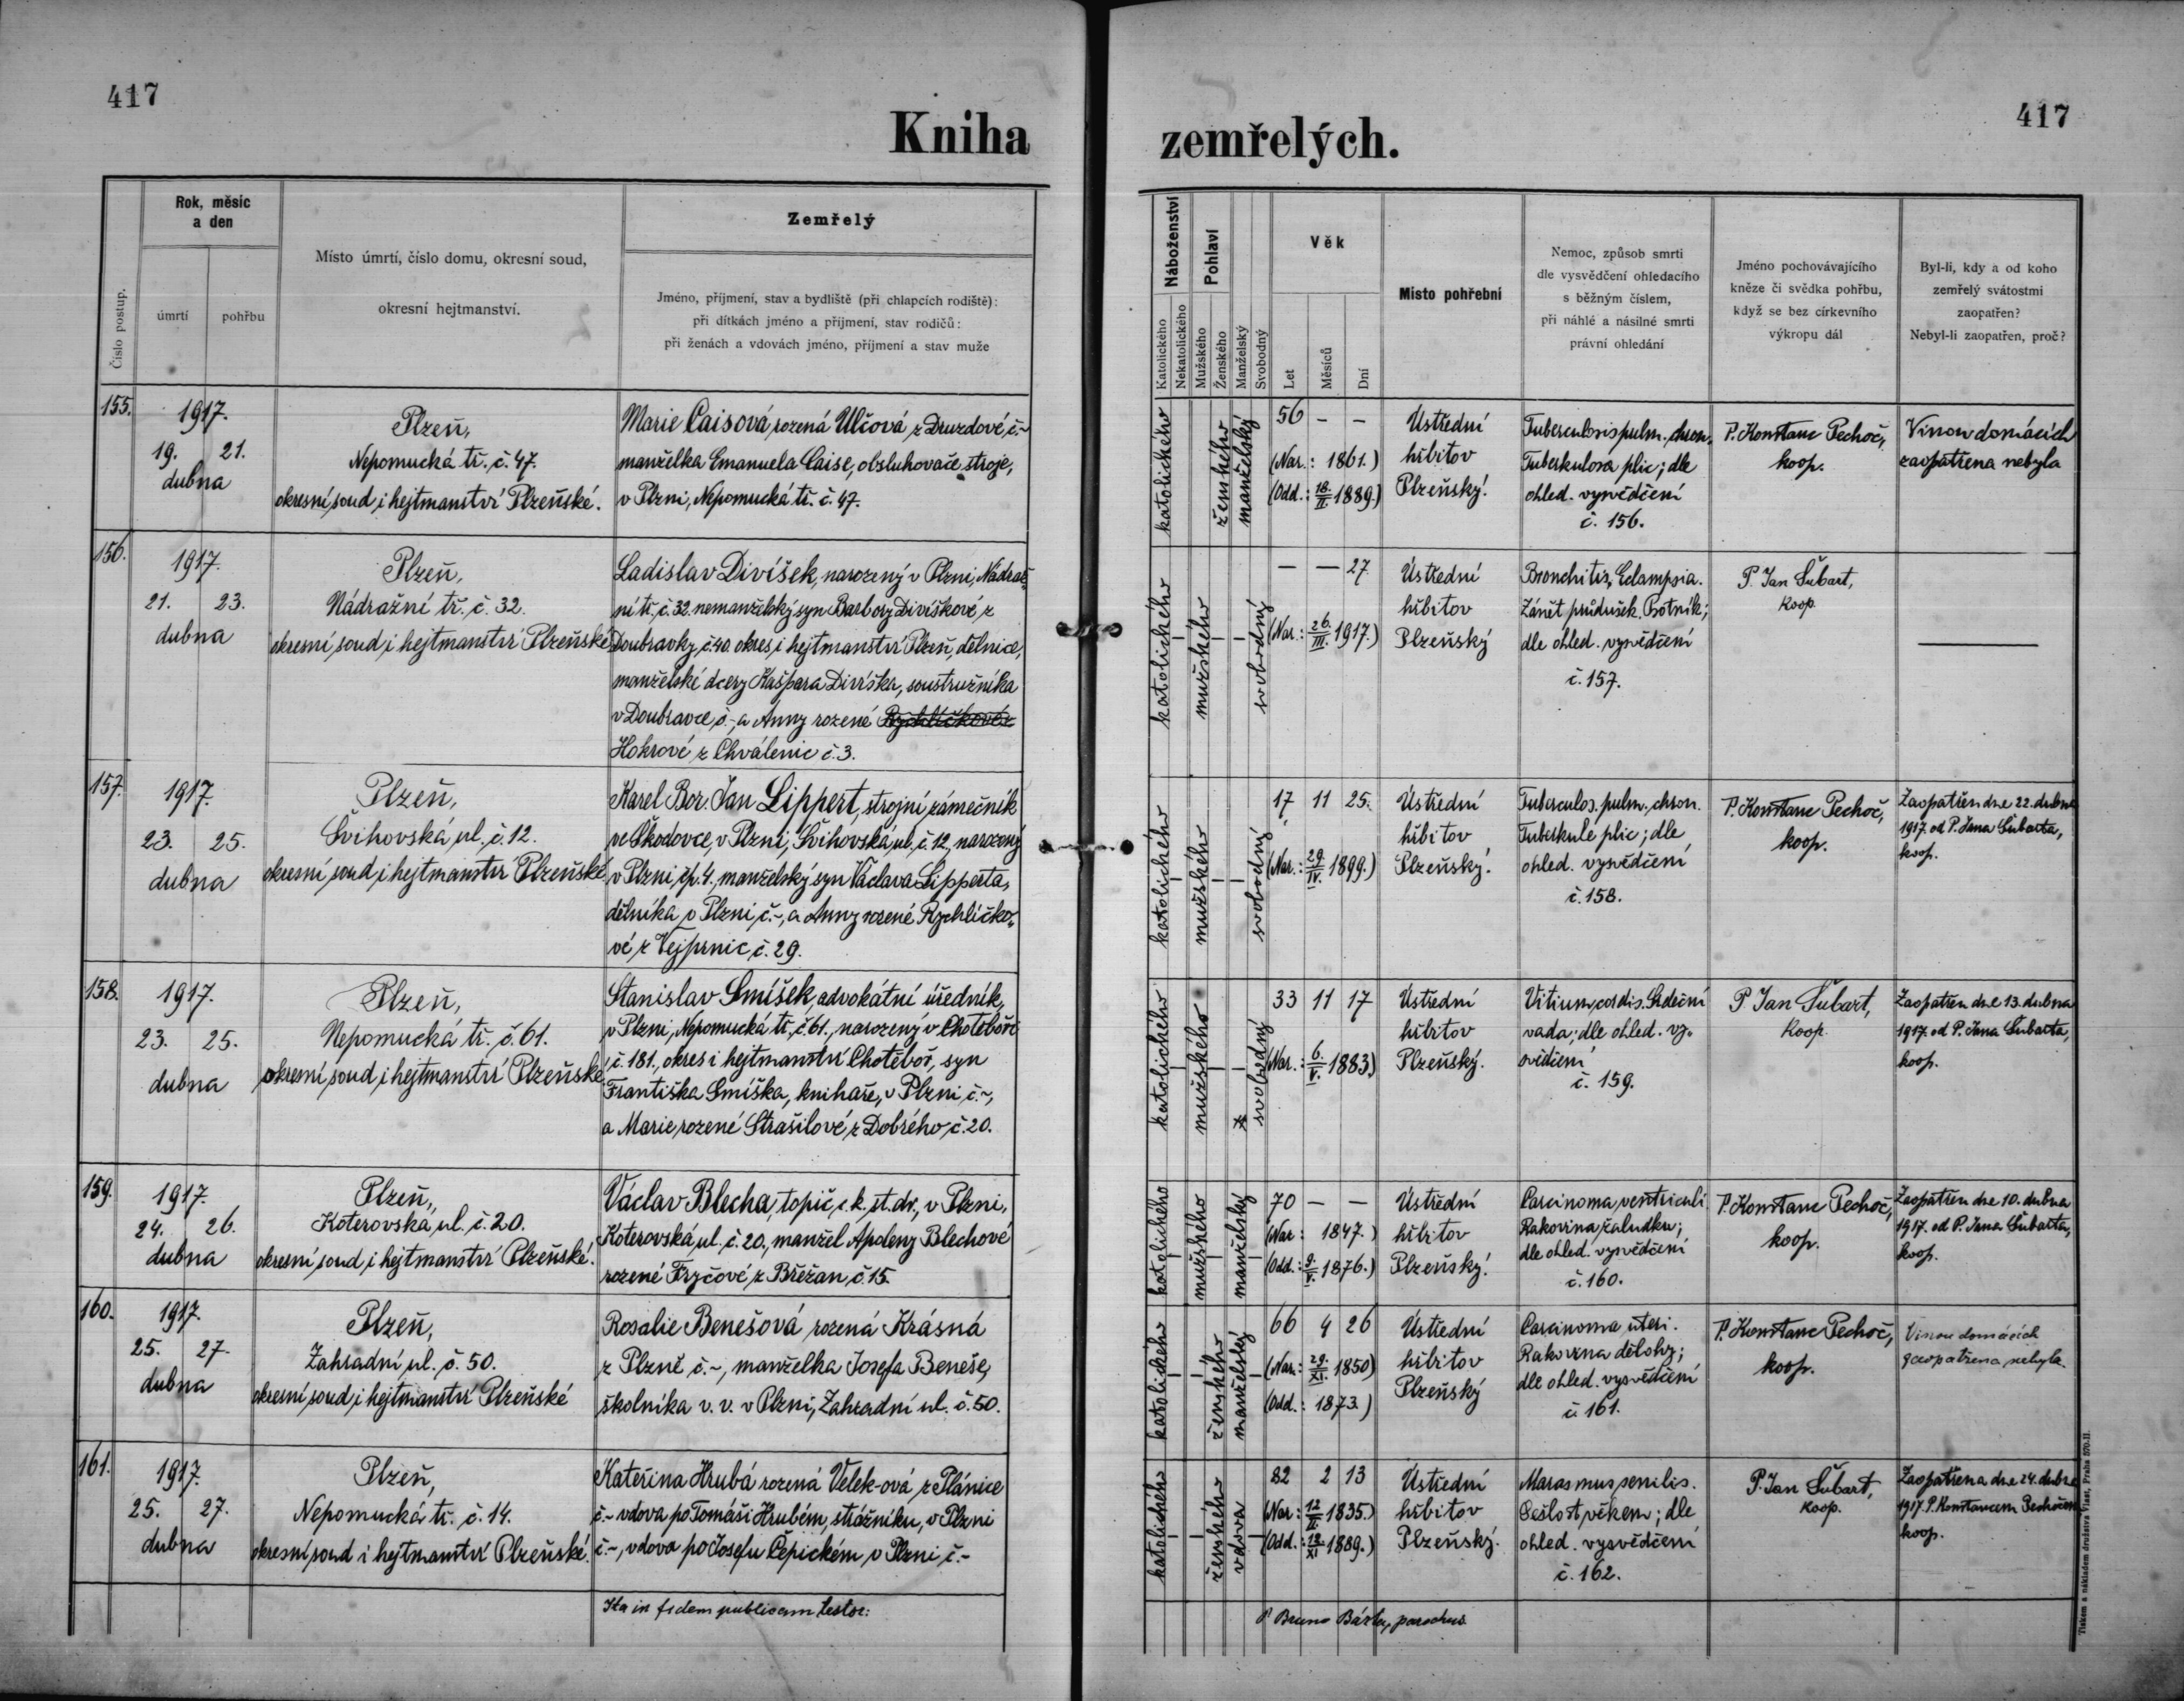 417
417
Kniha zemřelých.
Číslo postup.
Rok, měsíc
a den
úmrtí
pohřbu
Místo úmrtí, číslo domu, okresní soud,
okresní hejtmanství.
Zemřelý
Jméno, příjmení, stav a bydliště (při chlapcích rodiště):
při dítkách jméno a příjmení, stav rodičů:
při ženách a vdovách jméno, příjmení a stav muže
Náboženství
Katolického
Nekatolického
Pohlaví
Mužského
Ženského
Manželský
Svobodný
Věk
Let
Měsíců
Dní
Místo pohřební
Nemoc, způsob smrti
dle vysvědčení ohledacího
s běžným číslem,
při náhlé a násilné smrti
právní ohledání
Jméno pochovávajícího
kněze či svědka pohřbu,
když se bez církevního
výkropu dál
Byl-li, kdy a od koho
zemřelý svátostmi
zaopatřen?
Nebyl-li zaopatřen, proč?
155.
1917.
19. 21.
dubna
Plzeň,
Nepomucká tř. č. 47.
okresní soud i hejtmanství Plzeňské.
Marie Caisová, rozená Ulčová z Druzdové, č.-
manželka Emanuela Caise, obsluhovače stroje,
v Plzni, Nepomucká tř. č. 47.
katolického
ženského
manželský
56 - -
(Nar.: 1861.)
(Odd.: 18./II. 1889.)
Ústřední
hřbitov
Plzeňský.
Tuberculosis pulm. chron.
Tuberkulosa plic; dle
ohled. vysvědčení
č. 156.
P. Konstanc Pechoč,
koop.
Vinou domácích
zaopatřena nebyla
156.
1917.
21. 23.
dubna
Plzeň,
Nádražní tř. č. 32.
okresní soud i hejtmanství Plzeňské
Ladislav Divíšek, narozený v Plzni, Nádraž-
ní tř. č. 32. nemanželský syn Barbory Divíškové z
Doubravky, č. 40. okres i hejtmanství Plzeň, dělnice,
manželské dcery Kašpara Divíška, soustružníka
v Doubravce, č.- a Anny rozené Rychlíčkové z
Hokrové z Chválenic č. 3.
katolického
mužského
svobodný
- - 27.
(Nar.: 26./III. 1917.)
Ústřední
hřbitov
Plzeňský
Bronchitis, Eclampsia.
Zánět průdušek. Psotník;
dle ohled. vysvědčení
č. 157.
P. Jan Šubart,
koop.
157.
1917.
23. 25.
dubna
Plzeň,
Švihovská ul. č. 12.
okresní soud i hejtmanství Plzeňské
Karel Bor. Jan Lippert, strojní zámečník
ve Škodovce, v Plzni, Švihovská ul. č. 12, narozený
v Plzni, čp. 4., manželský syn Václava Lipperta,
dělníka v Plzni č.-, a Anny rozené Rychlíčko-
vé z Vejprnic č. 29.
katolického
mužského
svobodný
17 11 25.
(Nar.: 29./IV. 1899.)
Ústřední
hřbitov
Plzeňský.
Tuberculos. pulm. chron.
Tuberkule plic; dle
ohled. vysvědčení
č. 158.
P. Konstanc Pechoč,
koop.
Zaopatřen dne 22. dubna
1917. od P. Jana Šubarta,
koop.
158.
1917.
23. 25.
dubna
Plzeň,
Nepomucká tř. č. 61.
okresní soud i hejtmanství Plzeňské
Stanislav Smíšek, advokátní úředník,
v Plzni, Nepomucká tř. č. 61., narozený v Chotěboři
č. 181., okres i hejtmanství Chotěboř, syn
Františka Smíška, knihaře, v Plzni č.-,
a Marie rozené Strašilové z Dobrého č. 20.
katolického
mužského
svobodný
33 11 17
(Nar.: 6./V. 1883.)
Ústřední
hřbitov
Plzeňský.
Vitium cordis. Srdeční
vada; dle ohled. vy-
svědčení
č. 159.
P. Jan Šubart,
koop.
Zaopatřen dne 13. dubna
1917. od P. Jana Šubarta,
koop.
159.
1917.
24. 26.
dubna
Plzeň,
Koterovská ul. č. 20.
okresní soud i hejtmanství Plzeňské.
Václav Blecha, topič c. k. st. dr., v Plzni,
Koterovská ul. č. 20., manžel Apoleny Blechové
rozené Fryčové z Břežan, č. 15.
katolického
mužského
manželský
70 - -
(Nar: 1847.)
(Odd.: 9./V. 1876.)
Ústřední
hřbitov
Plzeňský.
Carcinoma ventriculi
Rakovina žaludku;
dle ohled. vysvědčení
č. 160.
P. Konstanc Pechoč,
koop.
Zaopatřen dne 10. dubna
1917. od P. Jana Šubarta,
koop.
160.
1917.
25. 27.
dubna
Plzeň,
Zahradní ul. č. 50.
okresní soud i hejtmanství Plzeňské
Rosalie Benešová rozená Krásná
z Plzně č.-, manželka Josefa Beneše,
školníka v. v. v Plzni, Zahradní ul. č. 50.
katolického
ženského
manželský
66 4 26
(Nar.: 29./XI. 1850)
(Odd.: 1873.)
Ústřední
hřbitov
Plzeňský
Carcinoma uteri.
Rakovina dělohy;
dle ohled. vysvědčení
č. 161.
P. Konstanc Pechoč,
koop.
Vinou domácích
zaopatřena nebyla.
161.
1917.
25. 27.
dubna
Plzeň,
Nepomucká tř. č. 14.
okresní soud i hejtmanství Plzeňské.
Kateřina Hrubá rozená Velek-ová z Plánice
č.- vdova po Tomáši Hrubém, strážníku, v Plzni
č.-, vdova po Josefu Čepickém, v Plzni č.-
katolického
ženského
vdova
82 2 13
(Nar: 12./II. 1835.)
(Odd.: 12./XI. 1889.)
Ústřední
hřbitov
Plzeňský.
Marasmus senilis.
Sešlost věkem; dle
ohled. vysvědčení
č. 162.
P. Jan Šubart,
koop.
Zaopatřena dne 24. dubna
1917. P. Konstancem Pechočem
koop.
Ita in fidem publicam testor:
P. Bruno Bárta, parochus
Tiskem a nákladem družstva Vlast, Praha 570-II.